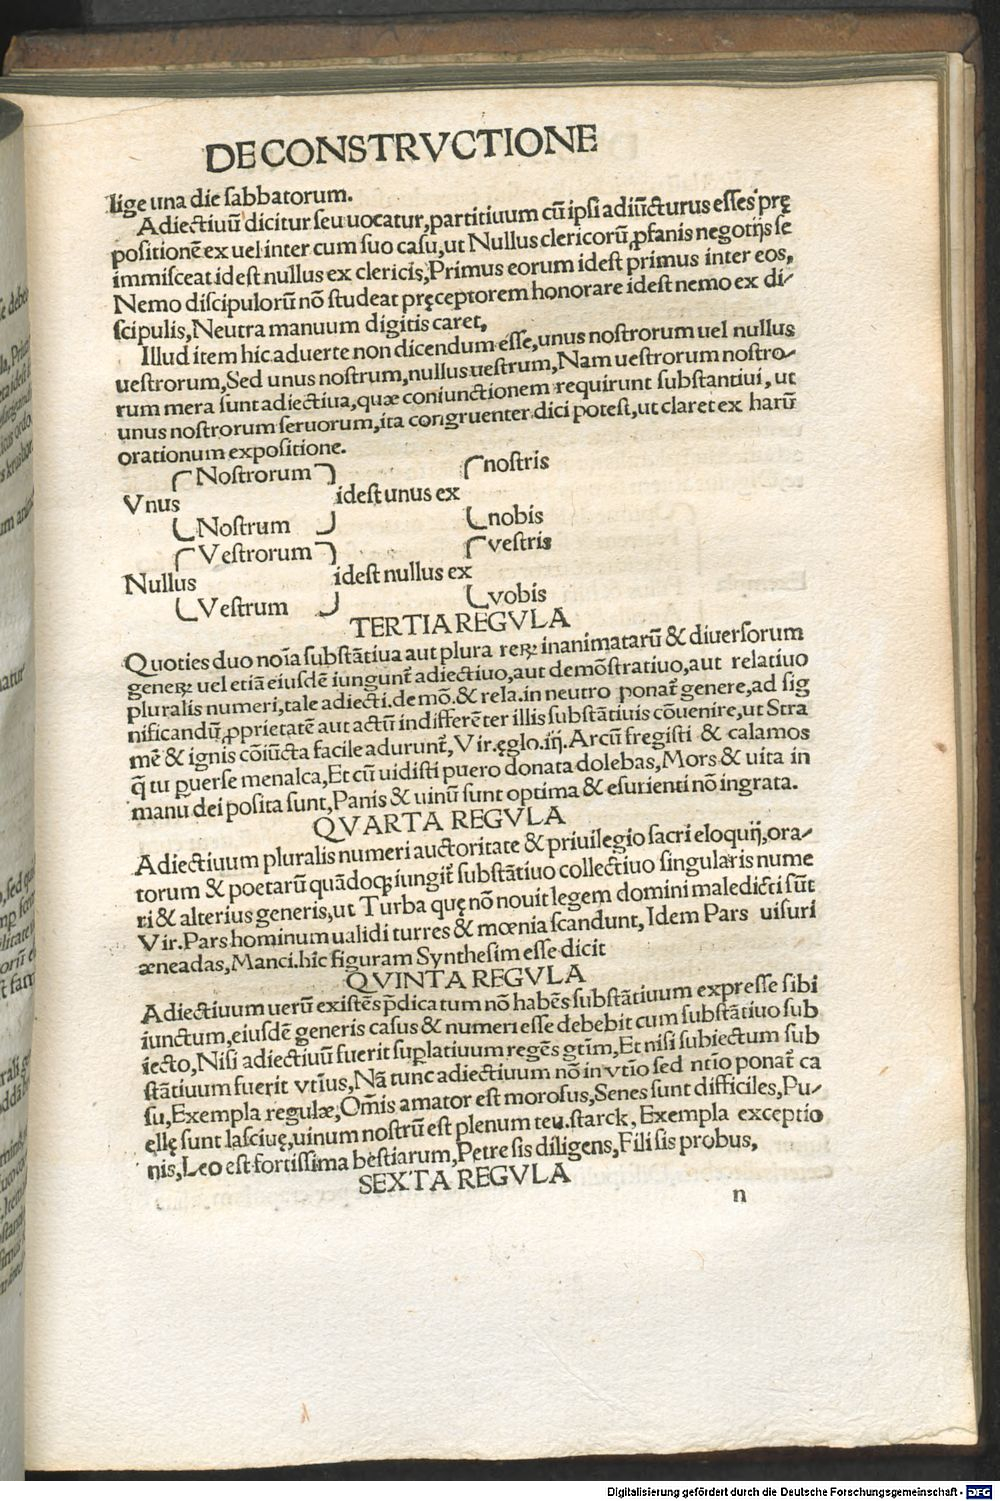 DE CONSTRVCTIONE
lige una die sabbatorum.
Adiectiuū dicitur seu uocatur, partitiuum cū ipsi adiūcturus esses prę
positionē ex uel inter cum suo casu, ut Nullus clericorū, ꝓfanis negotijs se
immisceat idest nullus ex clericis, Primus eorum idest primus inter eos,
Nemo discipulorū nō studeat pręceptorem honorare idest nemo ex di⸗
scipulis, Neutra manuum digitis caret,
Illud item hic aduerte non dicendum esse, unus nostrorum uel nullus
uestrorum, Sed unus nostrum, nullus uestrum, Nam uestrorum nostro⸗
rum mera sunt adiectiua, quæ coniunctionem requirunt substantiui, ut
unus nostrorum seruorum, ita congruenter dici potest, ut claret ex harū
orationum expositione.
Nostrorum nostris
Vnus idest unus ex
Nostrum nobis
Vestrorum vestris
Nullus idest nullus ex
Vestrum vobis
TERTIA REGVLA
Quoties duo noīa substātiua aut plura reꝝ inanimatarū & diuersorum
geneꝝ uel etiā eiusdē iungunt᷑ adiectiuo, aut demōstratiuo, aut relatiuo
pluralis numeri, tale adiecti. demō. & rela. in neutro ponat᷑ genere, ad sig
nificandū, ꝓprietatē aut actū indifferēter illis substātiuis cōuenire, ut Stra
mē & ignis cōiūcta facile adurunt᷑, Vir. ęglo. iij. Arcū fregisti & calamos
q̄ tu ꝑuerse menalca, Et cū uidisti puero donata dolebas, Mors & uita in
manu dei posita sunt, Panis & uinū sunt optima & esurienti nō ingrata.
QVARTA REGVLA
Adiectiuum pluralis numeri auctoritate & priuilegio sacri eloquij, ora⸗
torum & poetarū quādoqꝫ iungit᷑ substātiuo collectiuo singularis nume
ri & alterius generis, ut Turba quę nō nouit legem domini maledicti sūt
Vir. Pars hominum ualidi turres & mœnia scandunt, Idem Pars uisuri
æneadas, Manci. hic figuram Synthesim esse dicit
QVINTA REGVLA
Adiectiuum uerū existēs p̄dicatum nō habēs substātiuum expresse sibi
iunctum, eiusdē generis casus & numeri esse debebit cum substātiuo sub
iecto, Nisi adiectiuū fuerit suꝑlatiuum regēs gtīm, Et nisi subiectum sub
stātiuum fuerit vtīus, Nā tunc adiectiuum nō in vtīo sed ntīo ponat᷑ ca
su, Exempla regulæ, Om̄is amator est morosus, Senes sunt difficiles, Pu⸗
ellę sunt lasciuę, uinum nostrū est plenum teu. starck, Exempla exceptio
nis, Leo est fortissima bestiarum, Petre sis diligens, Fili sis probus,
SEXTA REGVLA
n
Digitalisierung gefördert durch die Deutsche Forschungsgemeinschaft - DFG